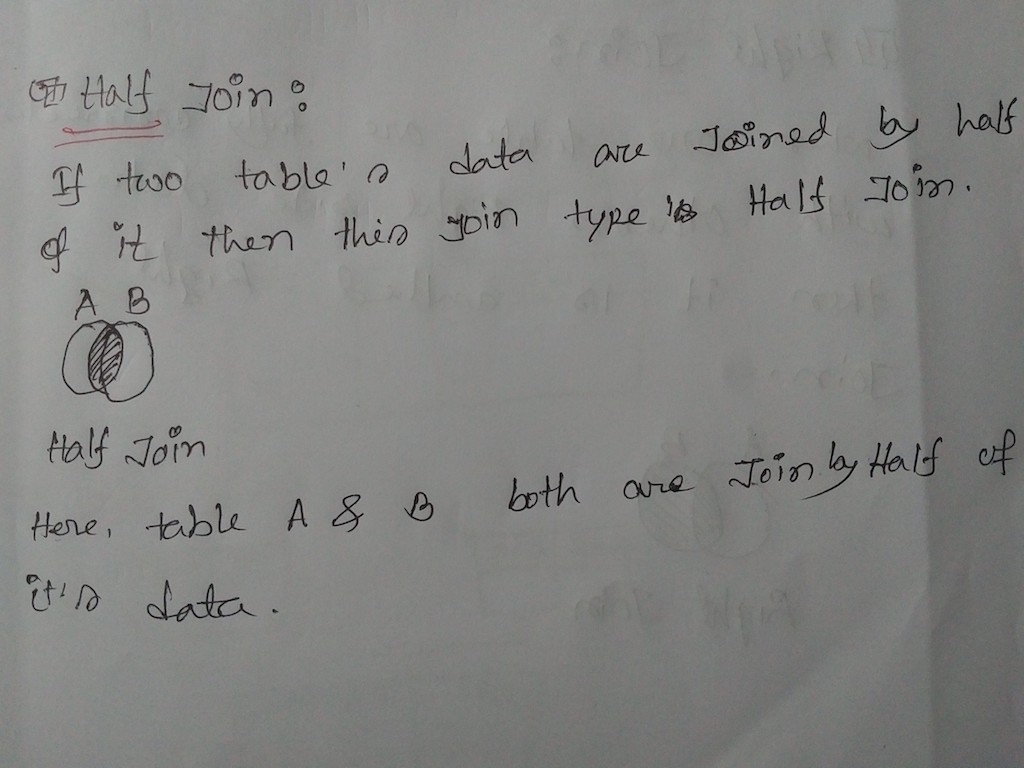 Half Join:
If two table's data are Joined by half
of it then this join type is Half Join.
A B
Half Join
Here, table A & B both are Join by Half of
it's data.